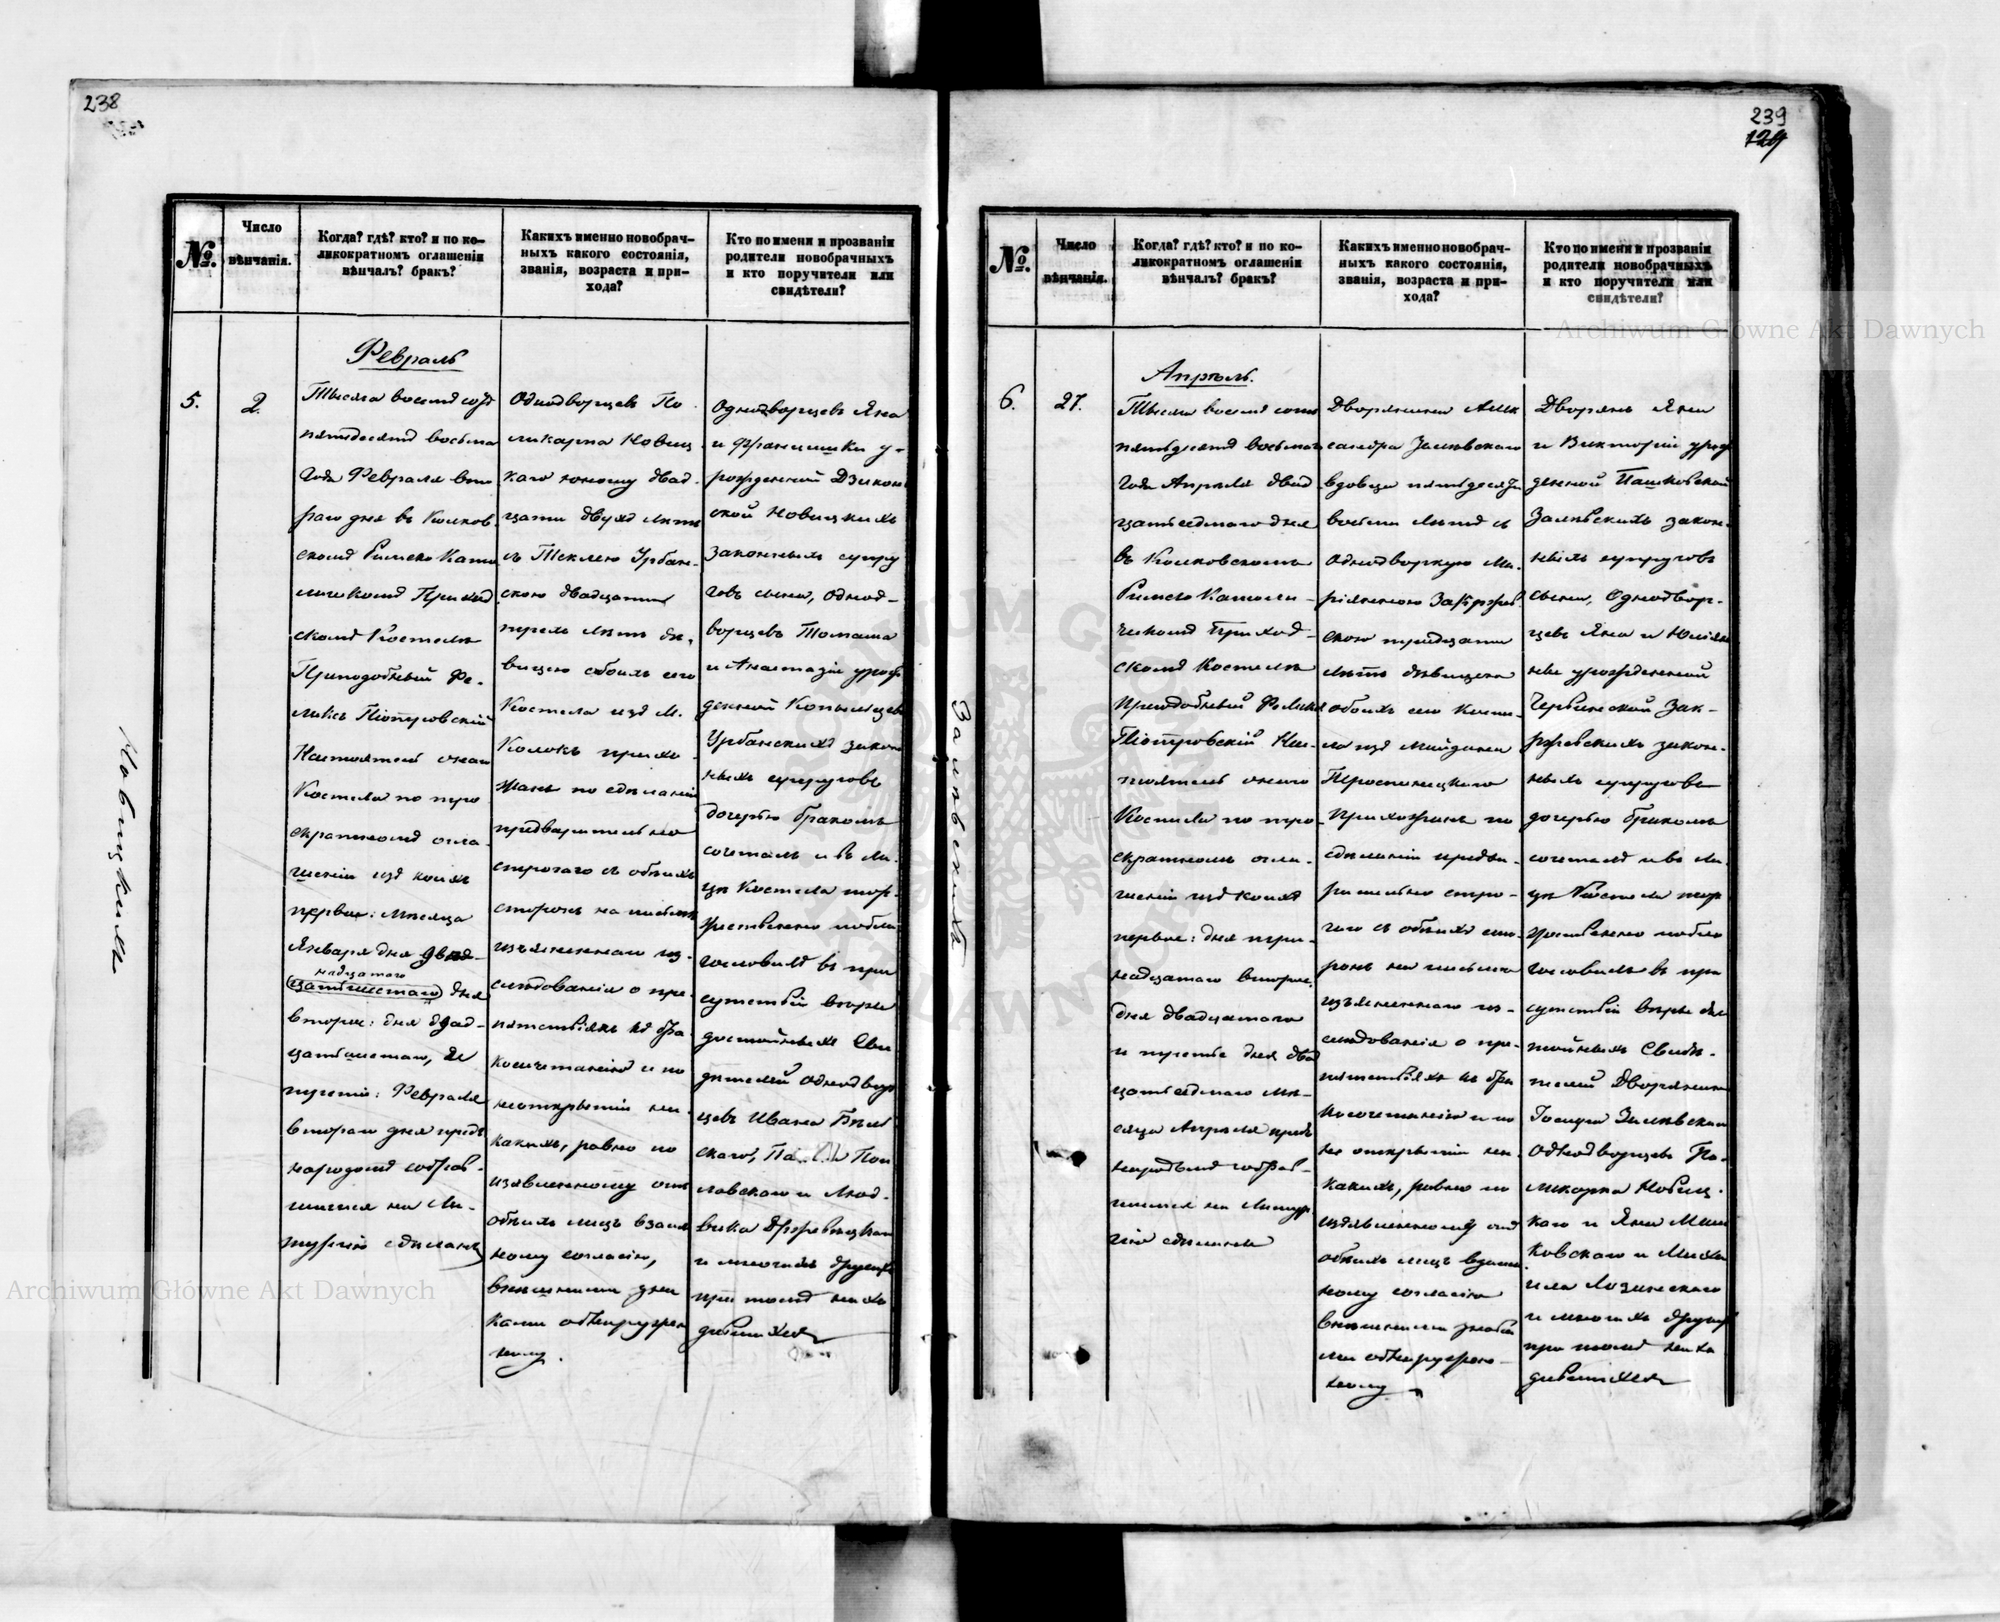 238
№.
Число
вѣнчанія.
Когда? гдѣ? кто? и по ко-
ликократномъ оглашеніи
вѣнчалъ? бракъ?
Какихъ именно новобрач-
ныхъ какого состоянія,
званія, возраста и при-
хода?
Кто по имени и прозваніи
родители новобрачныхъ
и кто поручители или
свидѣтели?
Новицкихъ
5.
2.
Февраль
Тысяча восемьсотъ
пятьдесятъ восьма
года Февраля вто
раго дня въ Колков
скомъ Римско Като
лическомъ Приход
скомъ Костелѣ
Преподобный Фе-
ликсъ Піотровскій
Настоятель онаго
Костела по тро
екратномъ огла-
шеніи изъ коихъ
первое: Мѣсяца
Января дня двѣ-
надцатаго
цатьшестаго дня
второе: дня двад-
цатьшестаго, и
третіе: Февраля
втораго дня предъ
народомъ собрав-
шимся на Ли-
тургію сдѣланъ
Однодворцевъ По
ликарпа Новиц
каго юношу двад-
цати двухъ лѣтъ
съ Теклею Урбан-
скою двадцати
трехъ лѣтъ дѣ-
вицею обоихъ сего
Костела изъ М.
Колокъ прихо
жанъ по сдѣланіи
предварительно
строгаго съ обѣихъ
сторонъ на письмѣ
изъясненнаго из-
слѣдованія о пре-
пятствіяхъ къ бра
косочетанію и по
неоткрытіи ни-
какихъ, равно по
изъявленному отъ
обѣихъ лицъ взаим
ному согласію,
внѣшними зна
ками обнаружен
ному.
Однодворцевъ Яна
и Францишки у-
рожденной Дзикон
ской Новицкихъ
законныхъ супру
говъ сына, однод-
ворцевъ Томаша
и Анастазіи урож
денной Копылцевъ
Урбанскихъ закон
ныхъ супруговъ
дочерью бракомъ
сочеталъ и въ ли-
цѣ Костела тор-
жественно побла
гословилъ въ при
сутствіи вѣры
достойныхъ Сви
дѣтелей однодвор
цевъ Ивана Бѣль
скаго, Поп
лавскаго и Люд-
вика Држевицкаго
и многихъ другихъ
при томъ нахо
дившихся
239
129
№.
Число
вѣнчанія.
Когда? гдѣ? кто? и по ко-
ликократномъ оглашеніи
вѣнчалъ? бракъ?
Какихъ именно новобрач-
ныхъ какого состоянія,
званія, возраста и при-
хода?
Кто по имени и прозваніи
родители новобрачныхъ
и кто поручители или
свидѣтели?
Залѣвскихъ
6.
27.
Апрѣль.
Тысяча восемьсотъ
пятьдесятъ восьмаго
года Апрѣля двад
цатьседмаго дня
въ Колковскомъ
Римско Католи-
ческомъ Приход-
скомъ Костелѣ
Преподобный Феликсъ
Піотровскій Нас-
тоятель онаго
Костела по тро-
екратномъ огла-
шеніи изъ коихъ
первое: дня три-
надцатаго второе:
дня двадцатаго
и третіе дня двад
цатьседмаго мѣ-
сяца Апрѣля предъ
народомъ собрав-
шимся на Литур
гію сдѣланъ
Дворянина Алек
сандра Залѣвскаго
вдовца пятьдесятъ
восьми лѣтъ съ
однодворкую Ма-
ріянною Закржев
скою тридцати
лѣтъ дѣвицею
обоихъ сего Косте-
ла изъ Майдана
Прихожанъ по
сдѣланіи предва-
рительно стро-
гаго съ обѣихъ сто-
ронъ на письмѣ
изъясненнаго из-
слѣдованія о пре-
пятствіяхъ къ бра
косочетанію и по
не открытіи ни-
какихъ, равно по
изъявленному отъ
обѣихъ лицъ взаим
ному согласію
внѣшними знака
ми обнаружен-
ному
Дворянъ Яна
и Викторіи урож
денной Пашковской
Залѣвскихъ закон-
ныхъ супруговъ
сына, Однодвор-
цевъ Яна и Юліян
ны урожденной
Червинской Зак-
ржевскихъ закон-
ныхъ супруговъ
дочерью бракомъ
сочеталъ и въ ли-
цѣ Костела тор
жественно побла
гословилъ въ при
сутствіи вѣры дос
тойныхъ Свидѣ-
телей Дворянина
Залѣвскаго
однодворцевъ По-
ликарпа Новиц-
каго и Яна
ковскаго и Миха
ила Лозинскаго
и многихъ другихъ
при томъ нахо
дившихся
Archiwum Główne Akt Dawnych
Archiwum Główne Akt Dawnych
ARCHIWUM GŁÓWNE AKT DAWNYCH